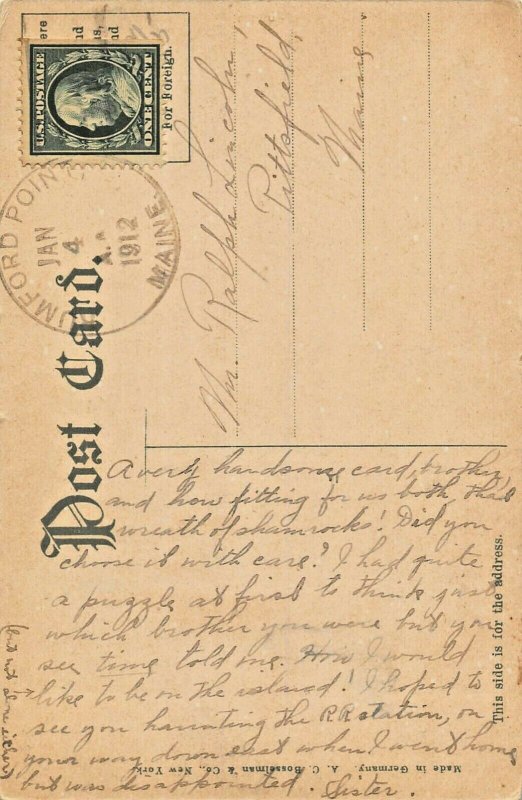 Post Card.
For Foreign.
U.S. POSTAGE
ONE CENT
RUMFORD POINT
JAN
4
1912
MAINE
Mr. Ralph Lincoln,
Pittsfield,
Maine
A very handsome card, brother,
and how fitting for us both, that
wreath of shamrocks! Did you
choose it with care? I had quite
a puzzle at first to think just
which brother you were but you
see time told me. How I would
like to be on the island! I hoped to
see you haunting the R.R. station, on
your way down east when I went home
but was disappointed. Sister.
(but not alone either)
This side is for the address.
Made in Germany. A. C. Bosselman & Co., New York